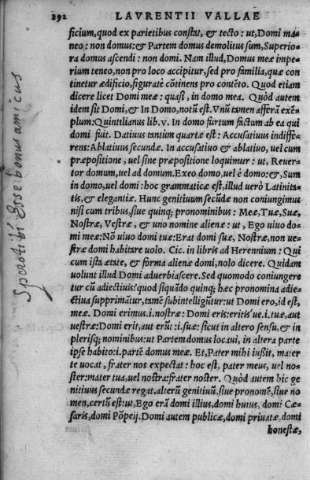 292 LAVRENTII VALLAE
ficium, quod ex parietibus constat, & tecto: ut, Domi ma
neo: non domus: & Partem domus demolitus sum, Superio
ra domus ascendi: non domi. Nam illud, Domus meæ impe
rium tento, non pro loco accipitur, sed pro familia, quæ con
tinetur ædificio, figuratè cōtinens pro contēto. Quod etiam
dicere licet Domi meæ: quasi, in domo mea. Quòd autem
idem sit Domi, & In Domo, notū est. Vnū tamen afferā exē=
plum: Quintilianus lib. v. In domo furtum factum ab ea qui
domi fuit. Datiuus tantum quartæ est: Accusatiuus indiffe=
rens: Ablatiuus secundæ. In accusatiuo & ablatiuo, uel cum
præpositione, uel sine præpositione loquimur: ut, Reuer=
tor domum, uel ad domum. Exeo domo, uel è domo: &, Sum
in domo, uel domi: hoc grammaticæ est, illud uerò Latinita=
tis, & elegantiæ. Hunc genitiuum secūdæ non coniungimus
nisi cum tribus, siue quinq; pronominibus: Meæ, Tuæ, Suæ,
Nostræ, Vestræ, & uno nomine alienæ: ut, Ego uiuo do
mi meæ: Nō uiuo domi tuæ: Erat domi suæ, Nostræ, non ue=
stræ domi habitare uolo. Cic. in libris ad Herennium: Qui
cum ista ætate, & forma alienæ domi, nolo dicere. Quidam
uolunt illud Domi aduerbiascere. Sed quomodo coniungere
tur cū adiectiuis? quod siquādo quinq; hæc pronomina adie=
ctiua supprimātur, tamē subintelligūtur: ut Domi ero, id est,
meæ. Domi erimus .i. nostræ: Domi eris: eritis' ue .i. tuæ, aut
uestræ: Domi erit, aut erūt: .i. suæ: sicut in altero sensu, & in
plerisq; nominibus: ut Partem domus locaui, in altera parte
ipse habito .i. partē domus meæ. Et, Pater mihi iußit, mater
te uocat, frater nos expectat: hoc est, pater meus, uel no=
ster: mater tua, uel nostra: frater noster. Quòd autem hic ge
nitiuus secundæ regat, alterū genitiuū, siue pronomē, siue no
men, certū est: ut, Ego erā domi illius, domi huius, domi Cæ=
saris, domi Pōpeij. Domi autem publicæ, domi priuatæ, domi
honestæ,
esse bonus amicus